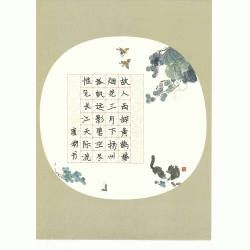 故人西辞黄鹤楼
烟花三月下扬州
孤帆远影碧空尽
惟见长江天际流
书